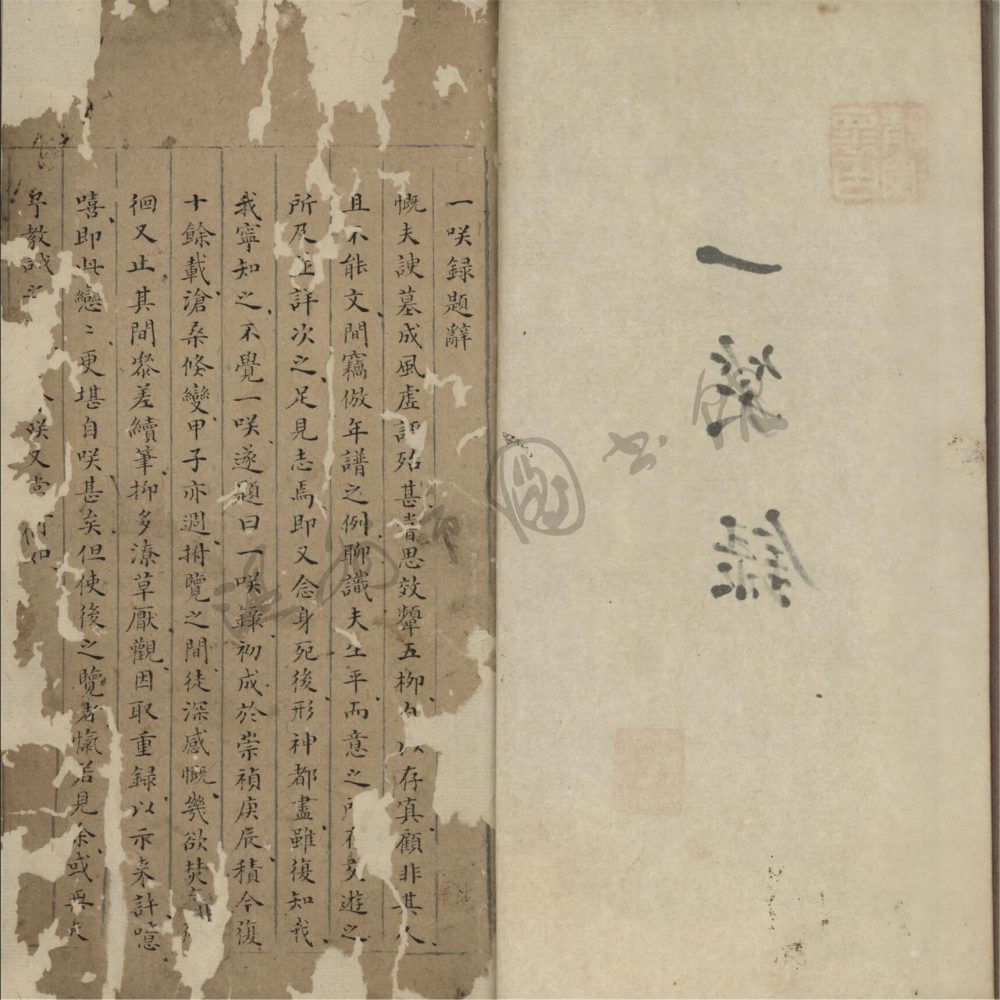 一咲錄
一咲録題辭
慨夫諛墓成風虛評殆甚嘗思效顰五柳存真顧非其人
且不能文間竊倣年譜之例聊識夫生平而意之所在交遊之
所及詳次之足見志焉即又念身死後形神都盡雖復知我
我寧知之不覺一咲遂題曰一咲錄初成於崇禎庚辰積今復
十餘載滄桑倐變甲子亦週拊覽之間徒深感慨幾欲焚
徊又止其間參差續筆抑多潦草厭觀因取重録以示来許噫
嘻即此戀〻更堪自咲甚矣但使後之覽者愾若見余或再
早教誡咲又當何如